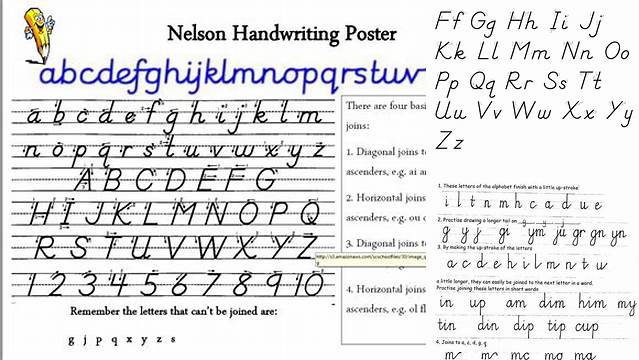 Nelson Handwriting Poster
abcdefghijklmnopqrstuv
a b c d e f g h i j k l m
n o p q r s t u v w x y z
A B C D E F G
H I J K L M N O P Q
R S T U V W X Y Z
1 2 3 4 5 6 7 8 9 10
Remember the letters that can't be joined are:
g j p q x y z s
There are four basi
joins:
1. Diagonal joins to
ascenders, e.g. ai ar
2. Horizontal joins
ascenders, e.g. ou o
3. Diagonal joins to
4. Horizontal joins
ascenders, e.g. ol fl
Ff Gg Hh Ii Jj
Kk Ll Mm Nn Oo
Pp Qq Rr Ss Tt
Uu Vv Ww Xx Yy
Zz
1. These letters of the alphabet finish with a little up-stroke
i l t n m h c a d u e
2. Practise drawing a longer tail on g y j
g y j gi ym ju gr gn yn
3. By making the up-stroke of the letters
a c d e h i l m n t u
a little longer, they can easily be joined to the next letter in a word.
Practise joining these letters in short words
in up am dim him my
tin din dip tip cup
4. Joins to a, c, d, g, q